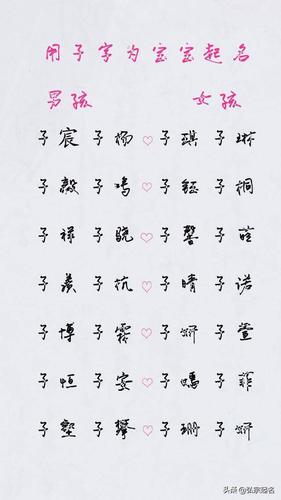 用子字为宝宝起名
男孩 女孩
子宸 子杨 ♡ 子琪 子琳
子毅 子鸣 ♡ 子钰 子桐
子祥 子骁 ♡ 子馨 子萱
子羡 子杭 ♡ 子晴 子诺
子博 子霖 ♡ 子妍 子萱
子恒 子安 ♡ 子嫣 子菲
子墊 子攀 ♡ 子珊 子妍
头条@弘宗起名